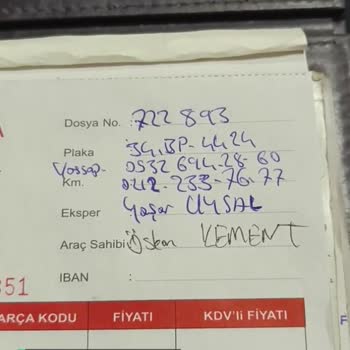 Dosya No. : 722 893
Plaka 34.BP-4424
0532 694-28-60
Km. 0212-233-76-77
Eksper Yaşar UYSAL
Araç Sahibi : KEMENT
IBAN :
351
ARÇA KODU FİYATI KDV'li FİYATI